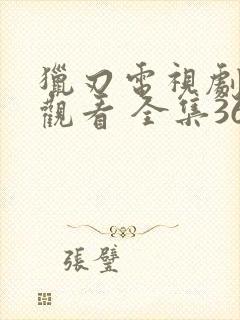 獵刃電視劇
觀看 全集36
張壁